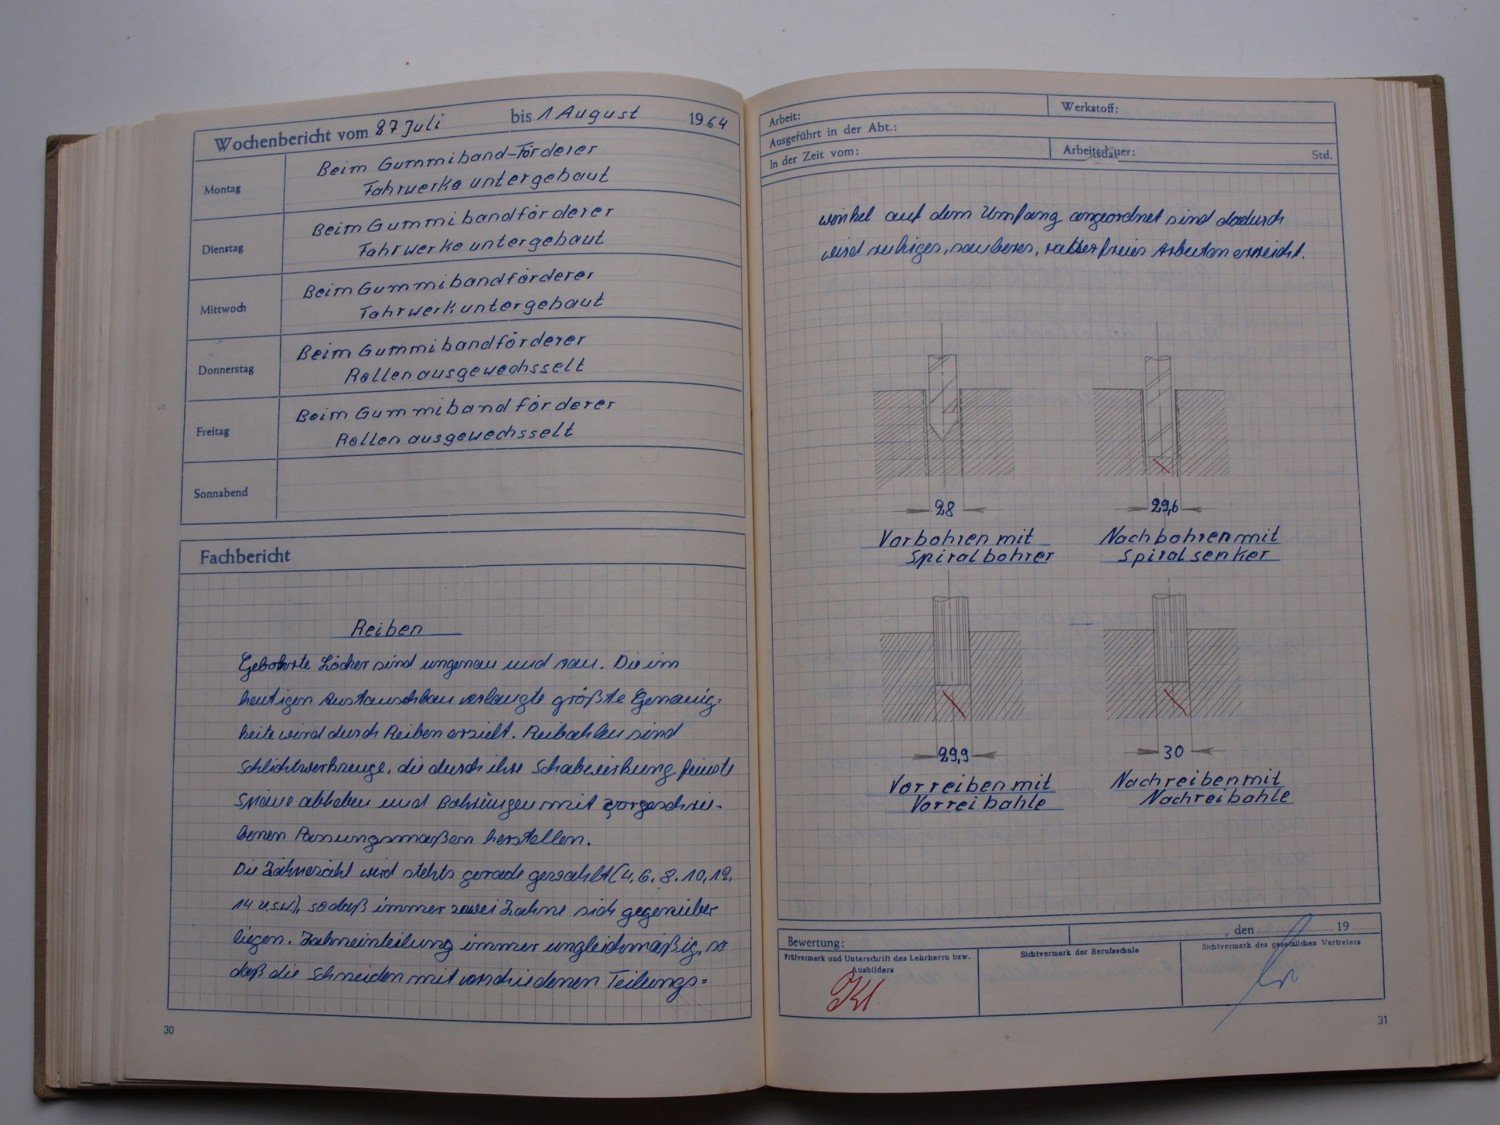 Wochenbericht vom 27 Juli bis 1 August 1964
Montag
Beim Gummiband-Förderer
Fahrwerke untergebaut
Dienstag
Beim Gummibandförderer
Fahrwerke untergebaut
Mittwoch
Beim Gummibandförderer
Fahrwerk untergebaut
Donnerstag
Beim Gummibandförderer
Rollen ausgewechsselt
Freitag
Beim Gummibandförderer
Rollen ausgewechsselt
Sonnabend
Fachbericht
Reiben
Gebohrte Löcher sind ungenau und rau. Die im
heutigen Austauschbau verlangte größte Genauig-
keite wird durch Reiben erzielt. Reibahlen sind
Schlichtwerkzeuge, die durch ihre Schabwirkung feinste
Späne abheben und Bohrungen mit vorgeschrie-
benen Passungsmaßen herstellen.
Die Zähnezahl wird stehts gerade gewählt (4, 6, 8, 10, 12,
14 usw), sodaß immer zwei Zähne sich gegenüber
liegen. Zahneinteilung immer ungleichmäßig, so
daß die Schneiden mit verschiedenen Teilungs-
30
Arbeit:
Werkstoff:
Ausgeführt in der Abt.:
In der Zeit vom:
Arbeitsdauer:
Std.
winkel auf dem Umfang angeordnet sind dadurch
wird ruhiges, sauberes, ratterfreies Arbeiten erreicht.
28
29,6
Vorbohren mit
Spiralbohrer
Nachbohren mit
Spiralsenker
29,9
30
Vorreiben mit
Vorreibahle
Nachreiben mit
Nachreibahle
Bewertung:
, den 19
Prüfvermerk und Unterschrift des Lehrherrn bzw.
Ausbilders
Sichtvermerk der Berufsschule
Sichtvermerk des gesetzlichen Vertreters
31